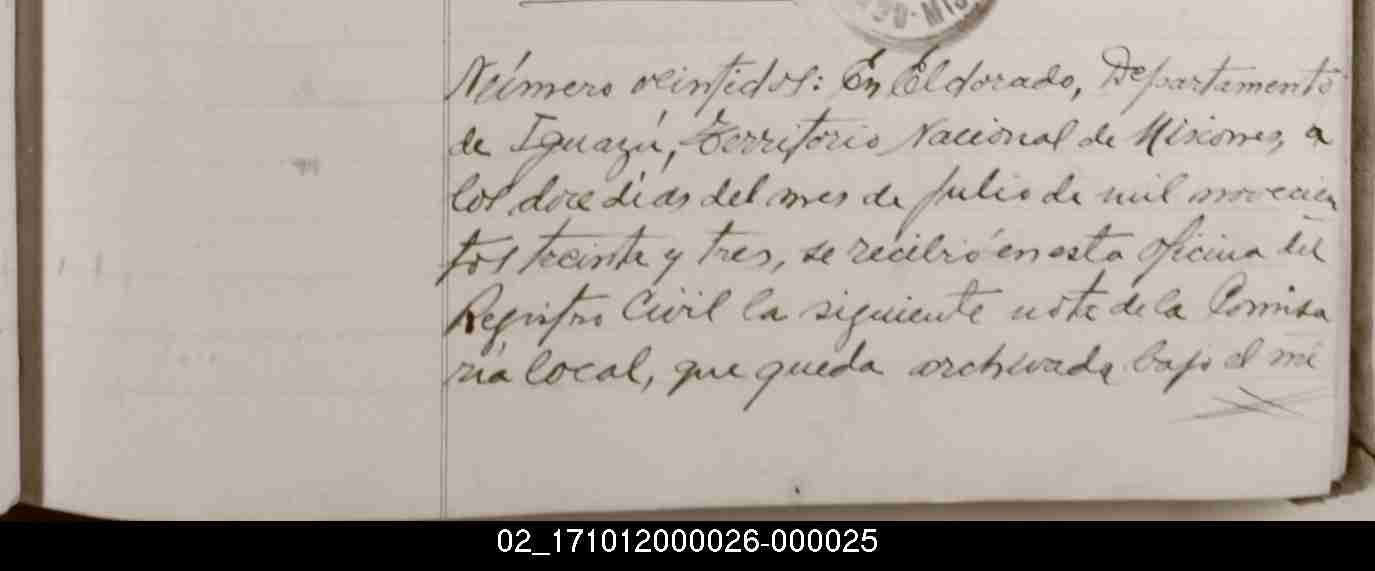 Número veintidos: En Eldorado, Departamento
de Iguazú, Territorio Nacional de Misiones, a
los doce dias del mes de Julio de mil novecien
tos treinta y tres, se recibió en esta oficina del
Registro Civil la siguiente nota de la Comisa
ria local, que queda archivada bajo el nú
02_171012000026-000025